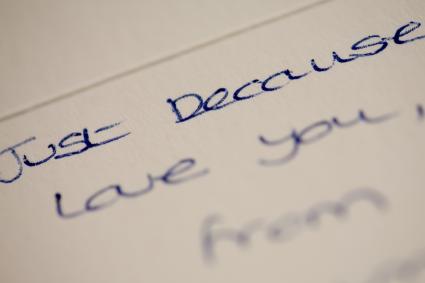 Just Because
Love you,
from